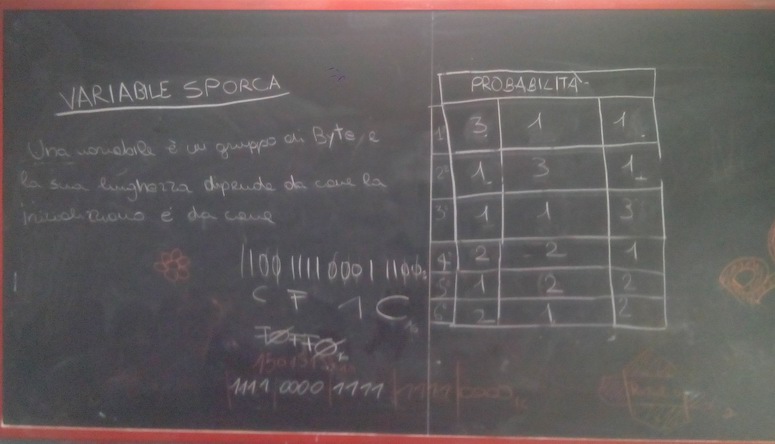 VARIABLE SPORCA
Una variabile è un gruppo di Byte, e
la sua lunghezza dipende da come la
inizializziamo è da come
1100 1111 0001 1100
C F 1 C
1111 0000 1111 1111 0000
PROBABILITÀ
1° 3 1 1
2° 1 3 1
3° 1 1 3
4° 2 2 1
5° 1 2 2
6° 2 1 2